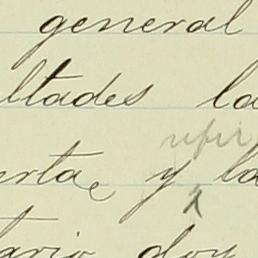 general
ltades la
erta y la
tario doy